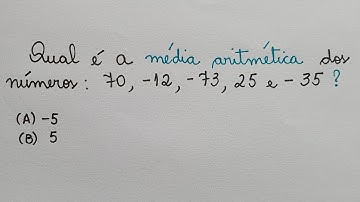 Qual é a média aritmética dos
números: 70, -12, -73, 25 e - 35 ?
(A) -5
(B) 5